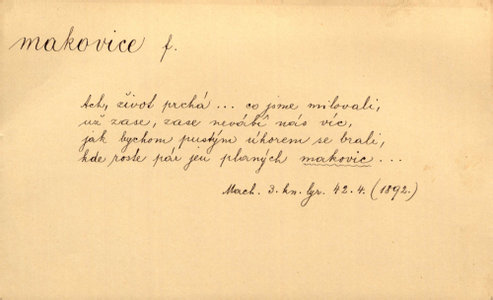 makovice f.
Ach, život prchá ... co jsme milovali,
už zase, zase nevábí nás víc,
jak bychom pustým úhorem se brali,
kde roste pár jen planých makovic ...
Mach. 3. kn. lyr. 42. 4. (1892.)